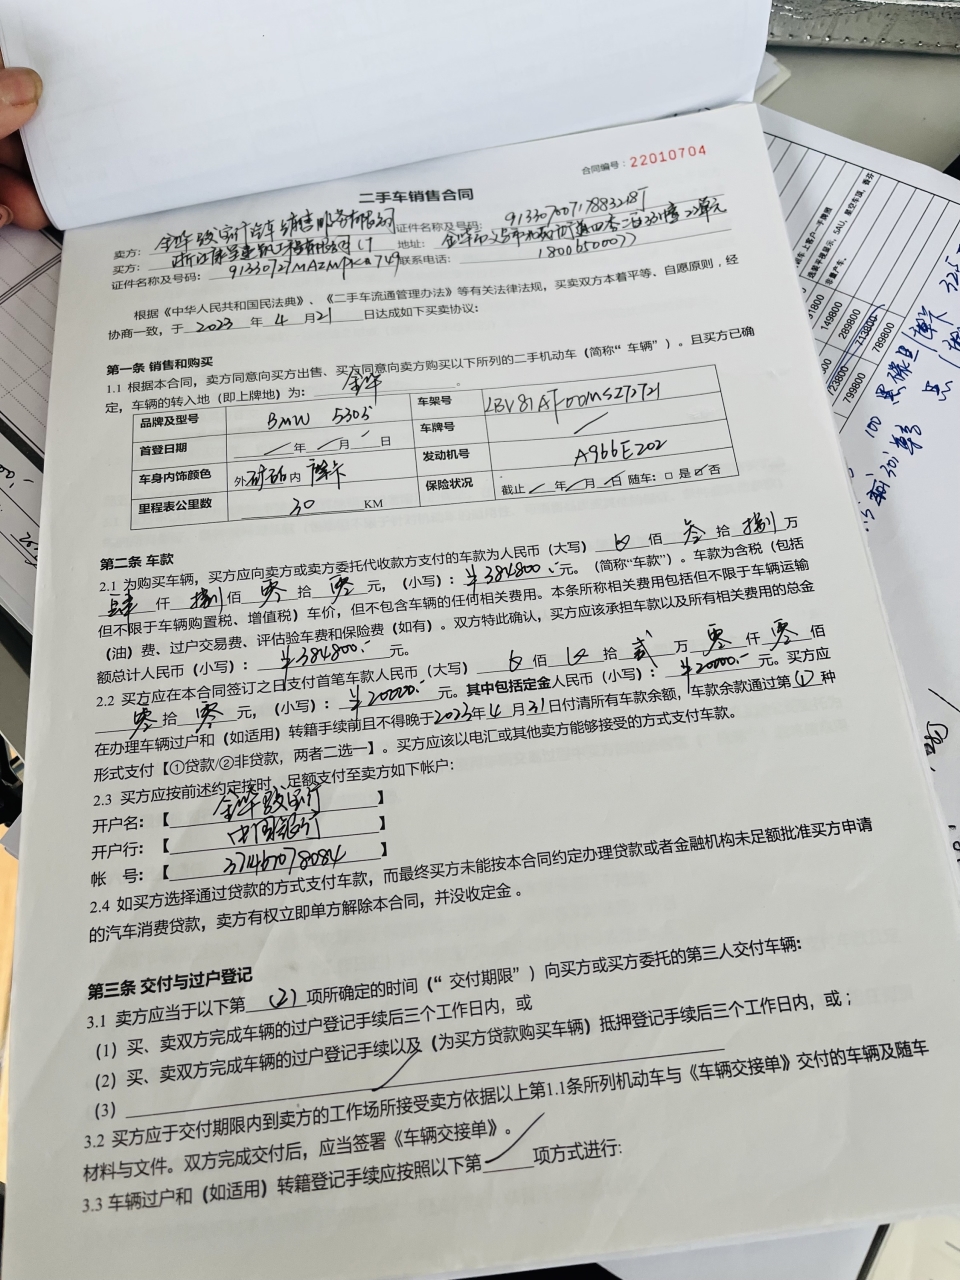 合同编号：22010704
二手车销售合同
卖方： 金华骏宝行汽车销售服务有限公司 证件名称及号码：
买方： 地址：
证件名称及号码： 联系电话：
根据《中华人民共和国民法典》、《二手车流通管理办法》等有关法律法规，买卖双方本着平等、自愿原则，经
协商一致，于 2023 年 4 月 21 日达成如下买卖协议：
第一条 销售和购买
1.1 根据本合同，卖方同意向买方出售、买方同意向卖方购买以下所列的二手机动车（简称“ 车辆”）。且买方已确
定，车辆的转入地（即上牌地）为： 金华 。
品牌及型号 BMW 530i 车架号
首登日期 年 月 日 车牌号
车身内饰颜色 外 内 摩卡 发动机号 A966E202
里程表公里数 30 KM 保险状况 截止 年 月 日 随车：□ 是 ☑ 否
第二条 车款
2.1 为购买车辆，买方应向卖方或卖方委托代收款方支付的车款为人民币（大写） 佰 叁 拾 捌 万
肆 仟 捌 佰 零 拾 零 元，（小写）：￥384800.- 元。（简称“车款”）。车款为含税（包括
但不限于车辆购置税、增值税）车价，但不包含车辆的任何相关费用。本条所称相关费用包括但不限于车辆运输
（油）费、过户交易费、评估验车费和保险费（如有）。双方特此确认，买方应该承担车款以及所有相关费用的总金
额总计人民币（小写）： ￥384800.- 元。
2.2 买方应在本合同签订之日支付首笔车款人民币（大写） 佰 拾 贰 万 零 仟 零 佰
零 拾 零 元，（小写）：￥20000.- 元。其中包括定金人民币（小写）：￥20000.- 元。买方应
在办理车辆过户和（如适用）转籍手续前且不得晚于2023年4月31日付清所有车款余额，车款余款通过第(1)种
形式支付【①贷款/②非贷款，两者二选一】。买方应该以电汇或其他卖方能够接受的方式支付车款。
2.3 买方应按前述约定按时、足额支付至卖方如下帐户：
开户名：【 金华骏宝行 】
开户行：【 中国银行 】
帐 号：【 37467078084 】
2.4 如买方选择通过贷款的方式支付车款，而最终买方未能按本合同约定办理贷款或者金融机构未足额批准买方申请
的汽车消费贷款，卖方有权立即单方解除本合同，并没收定金 。
第三条 交付与过户登记
3.1 卖方应当于以下第 (2) 项所确定的时间（“ 交付期限”）向买方或买方委托的第三人交付车辆:
（1）买、卖双方完成车辆的过户登记手续后三个工作日内，或
（2）买、卖双方完成车辆的过户登记手续以及（为买方贷款购买车辆）抵押登记手续后三个工作日内，或；
（3）
3.2 买方应于交付期限内到卖方的工作场所接受卖方依据以上第1.1条所列机动车与《车辆交接单》交付的车辆及随车
材料与文件。双方完成交付后，应当签署《车辆交接单》。
3.3 车辆过户和（如适用）转籍登记手续应按照以下第 项方式进行:
149800
289800
713800
789800
723800
799800